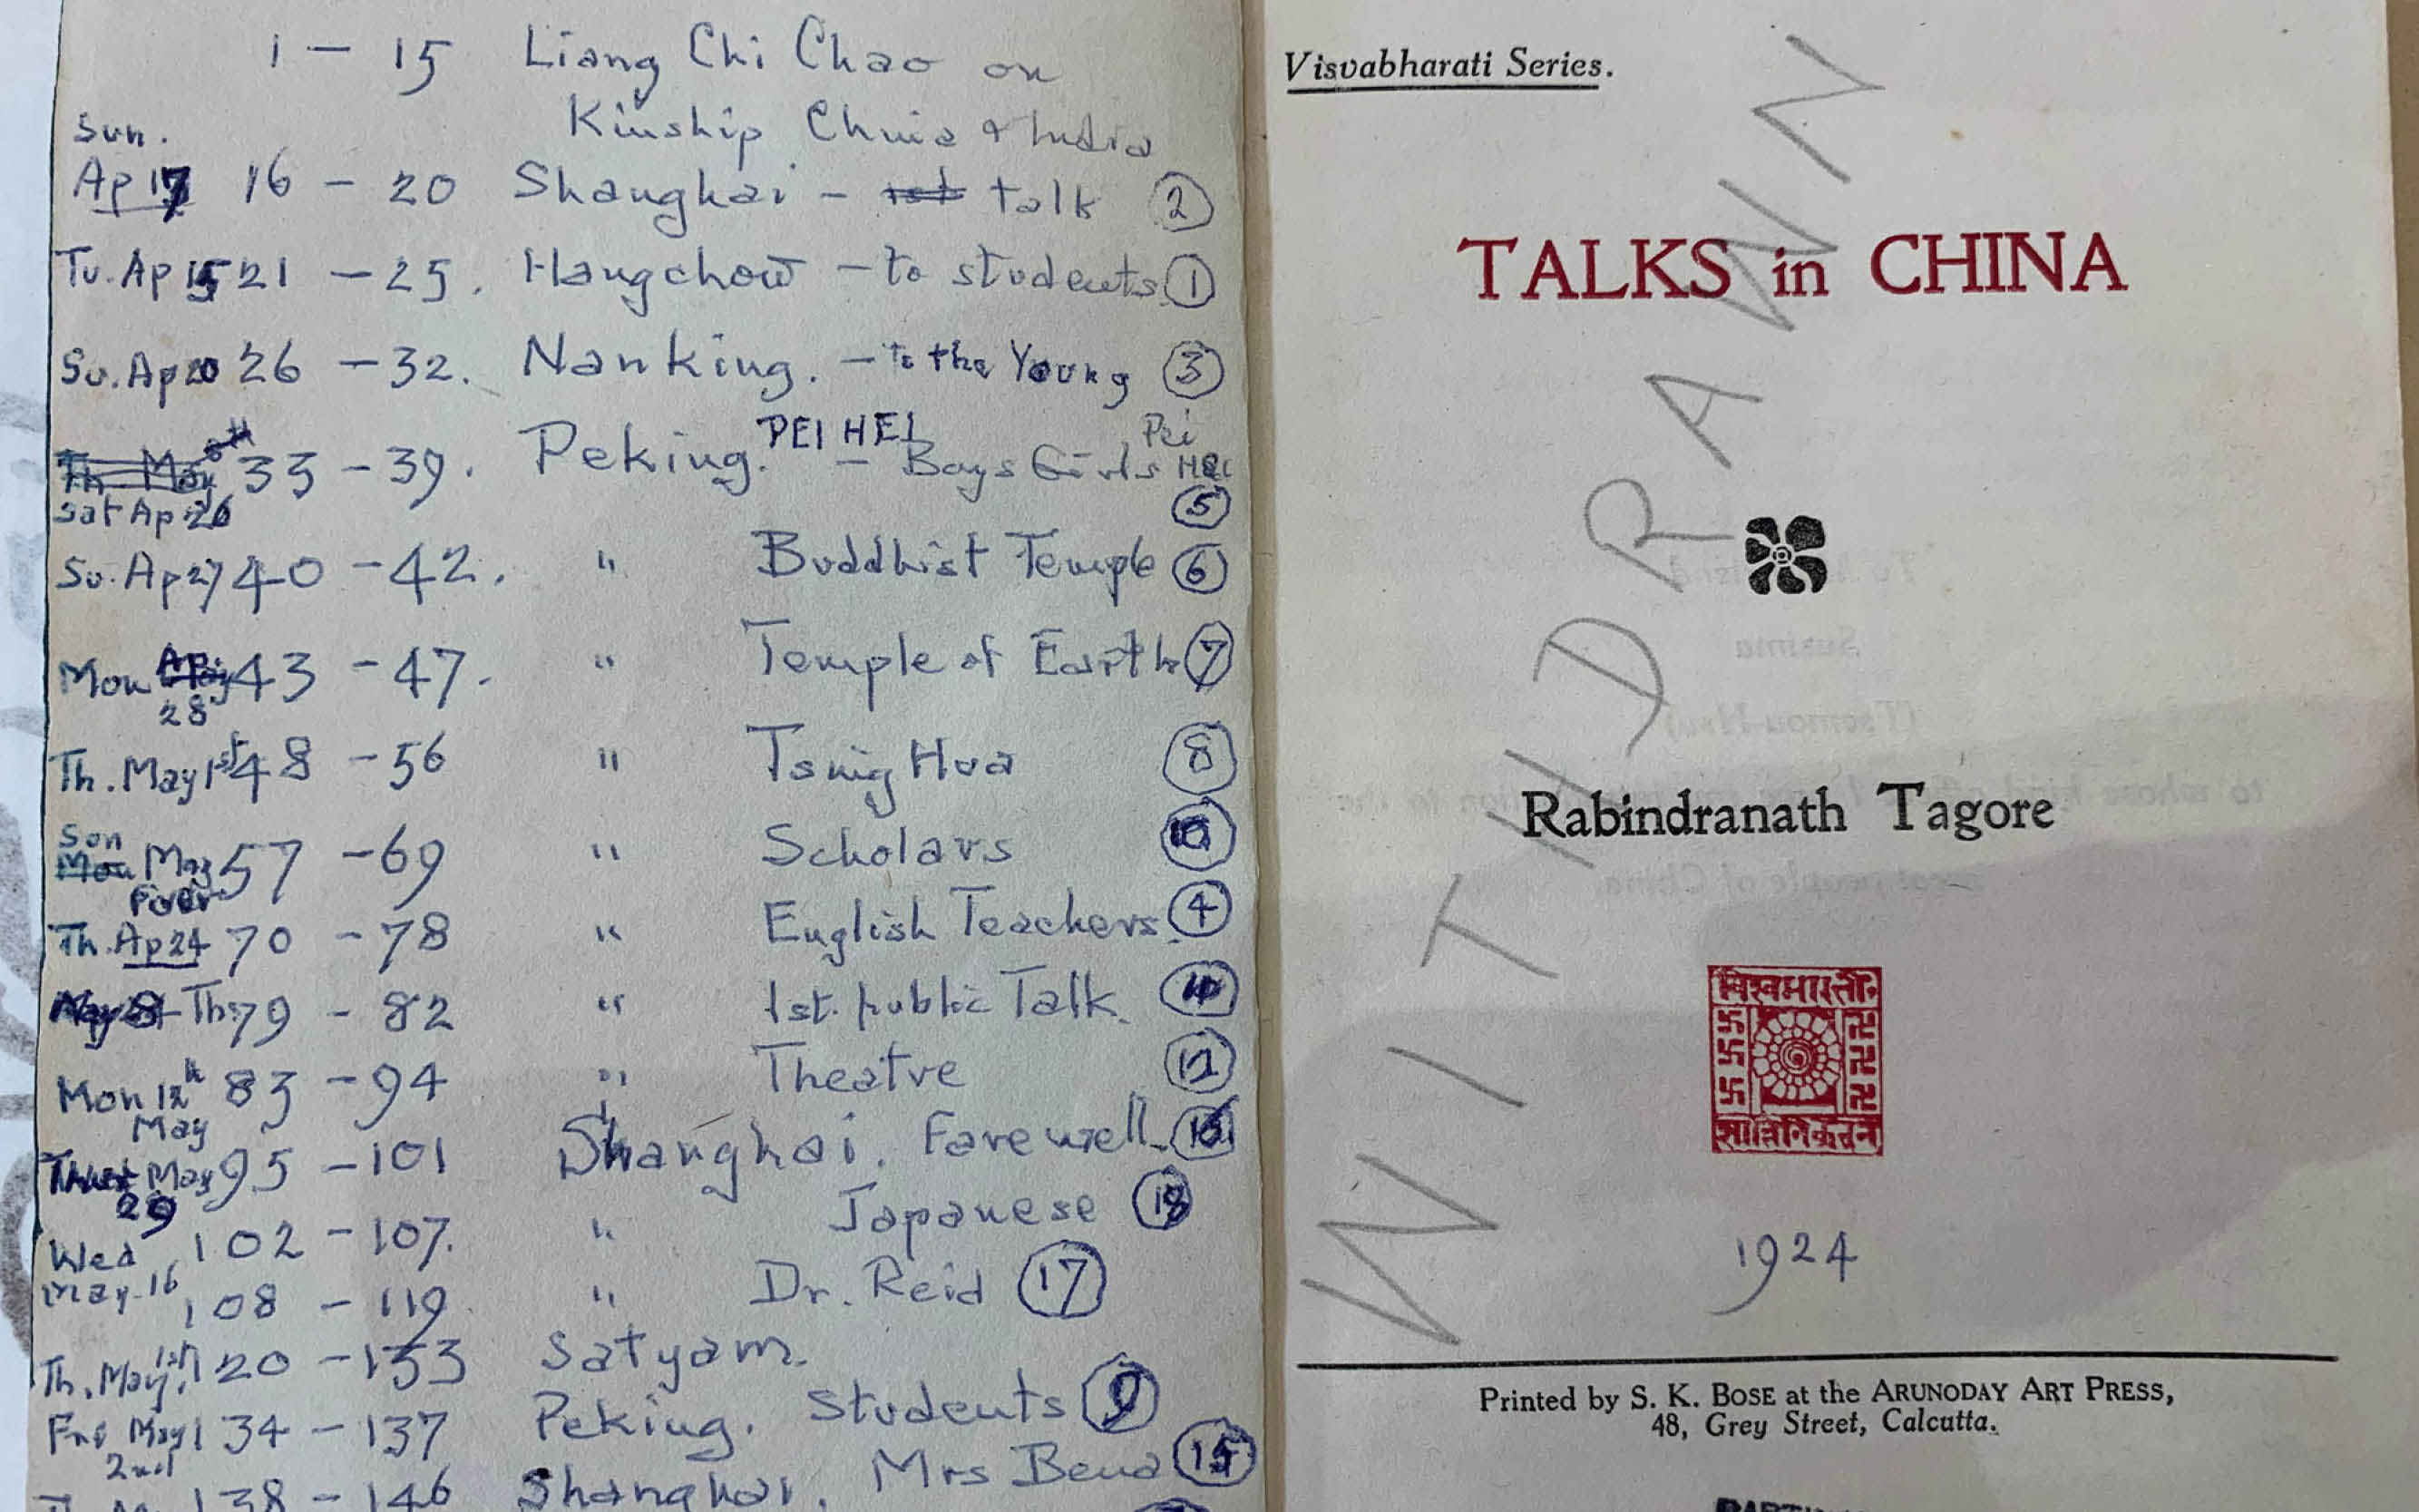 1 - 15 Liang Chi Chao on
Kinship China & India
Sun.
Ap 17 16 - 20 Shanghai - talk ②
Tu. Ap 15 21 - 25. Hangchow - to students ①
Su. Ap 20 26 - 32. Nanking. - to the Young ③
Th May 8th 33 - 39. Peking. PEI HEI - Boys Girls Pei Hei
Sat Ap 26 ⑤
Su. Ap 27 40 - 42. " Buddhist Temple ⑥
Mon Ap 43 - 47. " Temple of Earth ⑦
28
Th. May 1st 48 - 56 " Tsing Hua ⑧
Son
Mon May 57 - 69 " Scholars ⑩
Four
Th. Ap 24 70 - 78 " English Teachers. ④
May 8 Th. 79 - 82 " 1st. public Talk.
Mon 12th 83 - 94 " Theatre ⑫
May
May 95 - 101 Shanghai. Farewell.
29
102 - 107. " Japanese ⑱
Wed
May 16 108 - 119. " Dr. Reid ⑰
Th. May 1st 120 - 133 Satyam.
Fri May 134 - 137 Peking. Students ⑨
2nd
138 - 146 Shanghai. Mrs Bena ⑮
Visvabharati Series.
TALKS in CHINA
Rabindranath Tagore
WITHDRAWN
विश्वभारती
शान्तिनिकेतन
1924
Printed by S. K. BOSE at the ARUNODAY ART PRESS,
48, Grey Street, Calcutta.